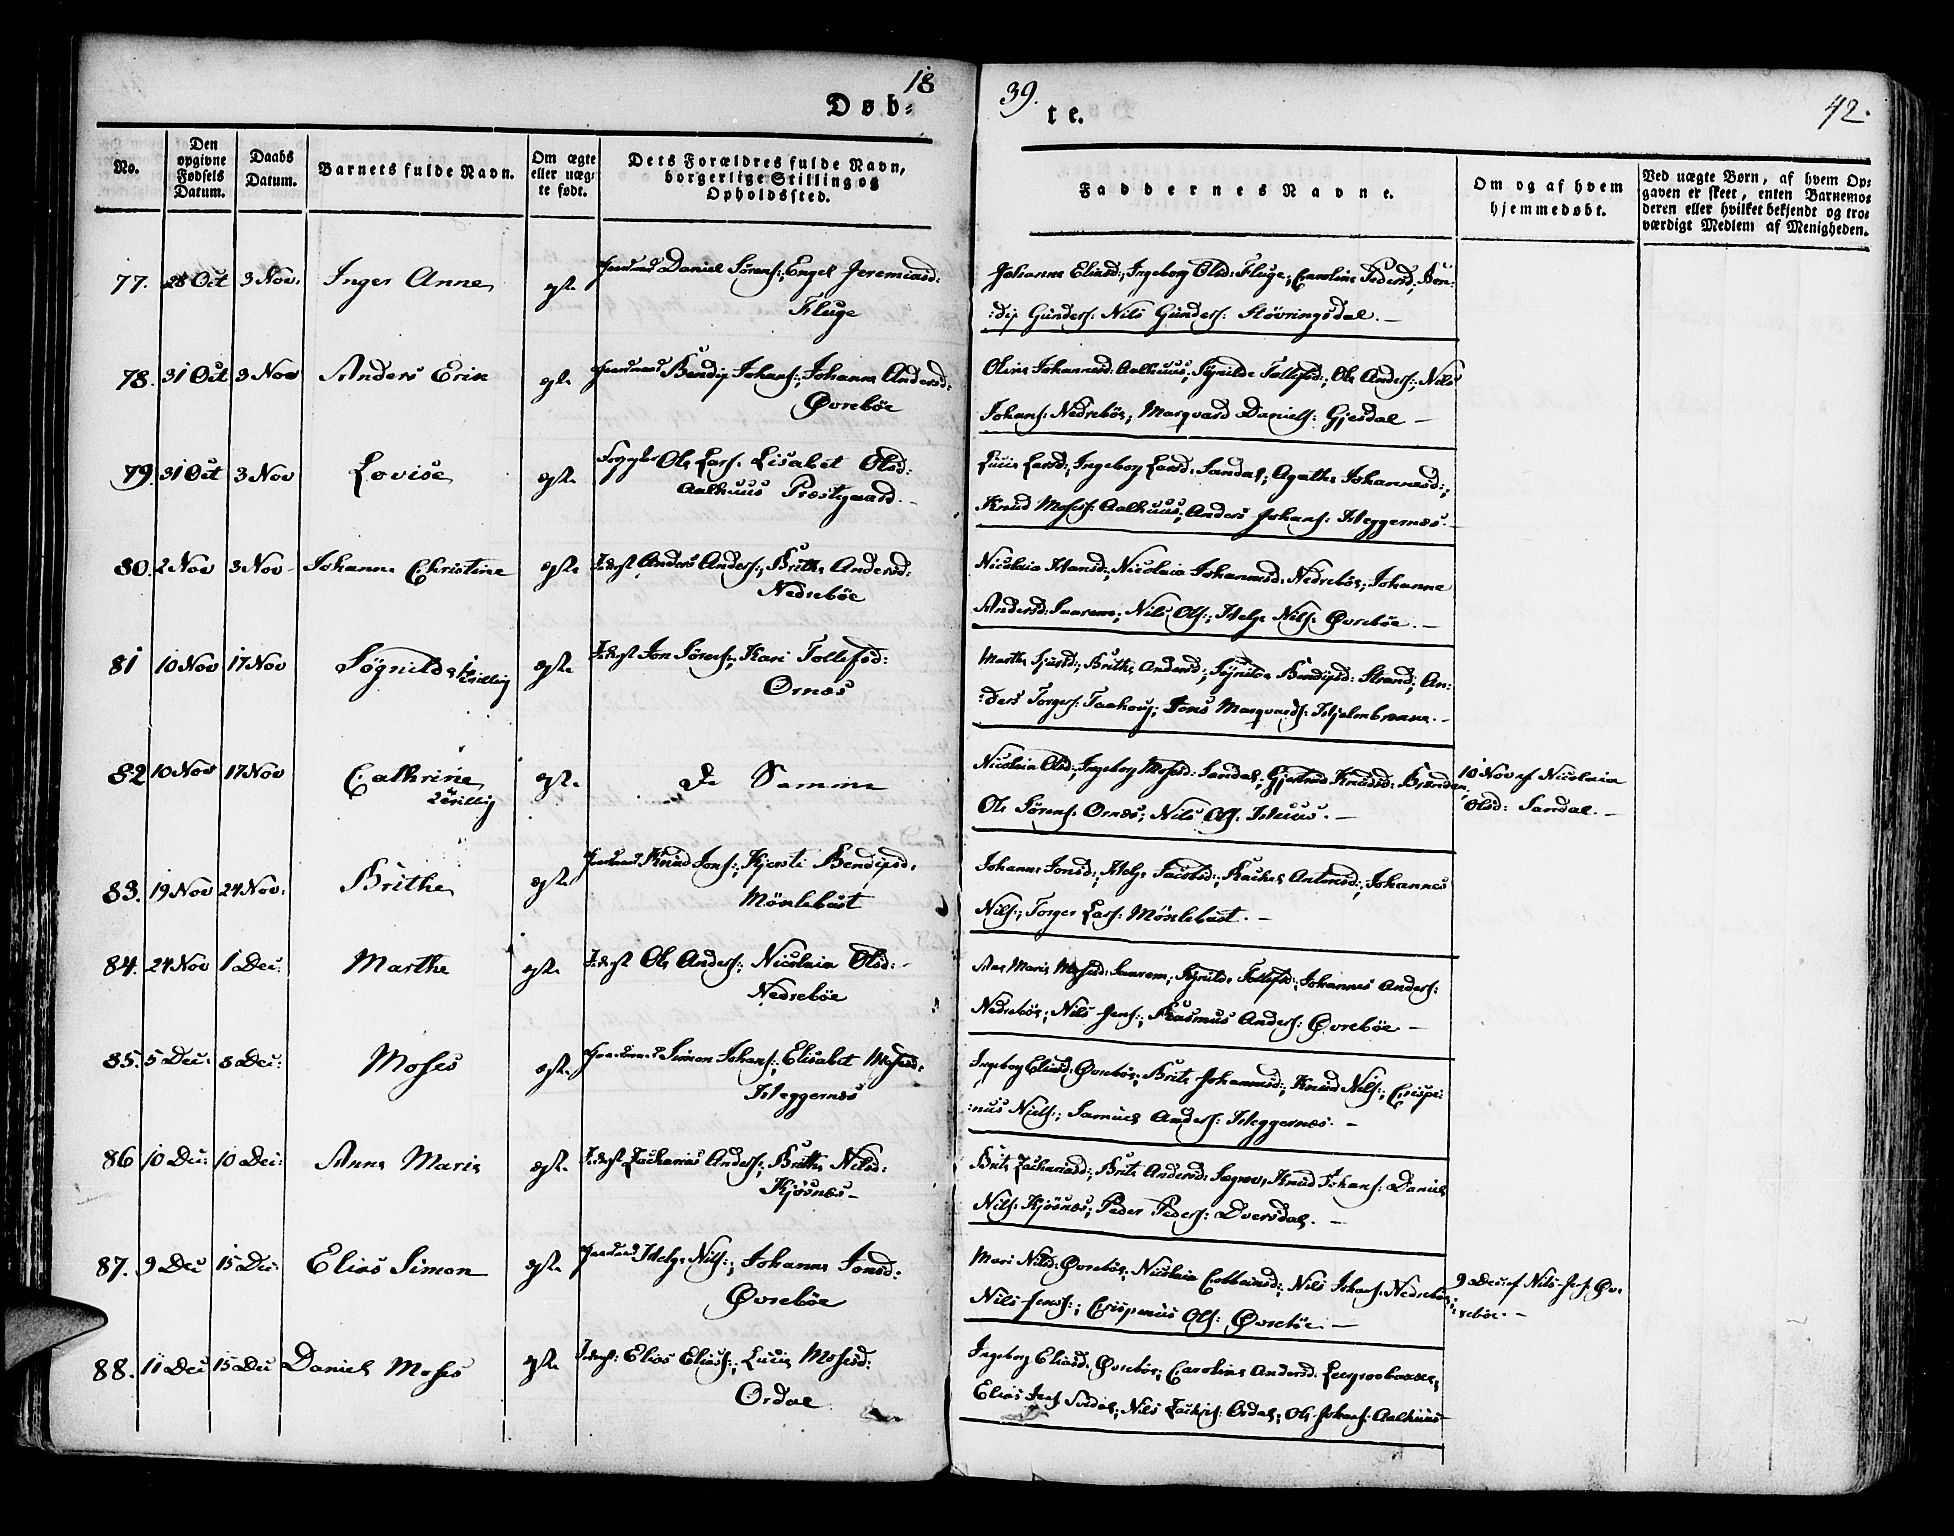 18
39.
42.
Døb-
te.
No.
Den opgivne Fødsels Datum.
Daabs Datum.
Barnets fulde Navn.
Om ægte eller uæg-
te født.
Dets Forældres fulde Navn,
borgerlige Stilling og
Opholdssted.
Faddernes Navne.
Om og af hvem
hjemmedøbt.
Ved uægte Børn, af hvem Op-
gaven er skeet, enten Barnemo-
deren eller hvilket bekjendt og tro-
værdigt Medlem af Menigheden.
77. 28 Oct 3 Nov. Inger Anne egte Daniel Sørens:, Engel Jeremiasd:
Fluge
Johanne Eliasd:, Ingeborg Olsd: Fluge, Caroline Pedersd:, Ben-
:dix Gunders: Nils Gunders: Støvringsdal.—
78. 31 Oct 3 Nov Anders Erik egte Bendix Johans:, Johanne Andersd:
Øvrebøe
Oline Johannesd: Aalhuus, Synilde Tollefsd:, Ole Anders:, Nils
Johans: Nedrebøe, Marqvard Daniels: Gjesdal—
79. 31 Oct 3 Nov Lovise egte Ole Lars: Lisabet Olsd:
Aalhuus Præstgaard.—
Lucie Larsd:, Ingeborg Larsd: Sandal, Agathe Johannesd:,
Knud Moses: Aalhuus, Anders Johans: Heggernæs.—
80. 2 Nov 3 Nov Johanne Christine egte Inderst Anders Anders:, Brithe Andersd:
Nedrebøe
Nicolaia Hansd:, Nicolaia Johannesd: Nedrebøe, Johanne
Andersd: Aarem, Nils Ols:, Helge Nils: Øvrebøe.—
81 10 Nov 17 Nov Søgnilde Tvilling egte Inderst Jon Sørens:, Kari Tollefsd:
Ornæs
Marthe Sjursd:, Brithe Andersd:, Synilde Bendixsd: Strand, An-
:ders Torgers: , Jens Marqvards: Hjelmbrække.—
82 10 Nov 17 Nov Cathrine Tvilling egte De Samme
Nicolaia Olsd:, Ingeborg Mosesd: Sandal, Gjertrud Knudsd:
Ole Sørens: Ornæs, Nils Ols: Huus.—
10 Nov af Nicolaia
Olsd: Sandal.—
83. 19 Nov 24 Nov. Brithe egte Knud Jons:, Kjersti Bendixsd:
Mönlebust
Johanne Jonsd:, Helge Jacobsd:, Rachel Antonsd:, Johannes
Nils:, Torger Lars: Mönlebust.—
84. 24 Nov 1 Dec: Marthe egte Inderst Ole Anders:, Nicolaia Olsd:
Nedrebøe
Ane Marie Mosesd: Aarem, Synilde Tollefsd:, Johannes Anders:
Nedrebøe, Nils Jens:, Rasmus Anders: Øvrebøe—
85. 5 Dec: 8 Dec: Moses egte Simon Johans:, Elisabet Mosesd:
Heggernæs
Ingeborg Eliasd: Øvrebøe, Brite Johannesd:, Knud Nils:, Crispi-
:nus Niels:, Samuel Anders: Heggernæs.—
86 10 Dec: 10 Dec: Anne Marie egte Inderst Zacharias Anders:, Brithe Nilsd:
Kjøsnæs—
Brite Zachariasd:, Brite Andersd: Sægrov, Knud Johans: Daniel
Nils: Kjøsnæs, Peder Peders: Dvergsdal.—
87. 9 Dec 15 Dec: Elias Simon egte Helge Nils:, Johanne Jonsd:
Øvrebøe
Mari Nilsd: Øvrebøe, Nicolaia Colbeinsd:, Nils Johans: Nedrebøe
Nils Jens:, Crispinus Ols: Øvrebøe.—
9 Dec: af Nils Jens: Øv-
:rebøe.—
88. 11 Dec 15 Dec Daniel Moses egte Inderst: Elias Elias:, Lucie Mosesd:
Ordal
Ingeborg Eliasd: Øvrebøe, Caroline Andersd:
Elias Jens: , Nils Zachris: Ordal, Ole Johans: Aalhuus—